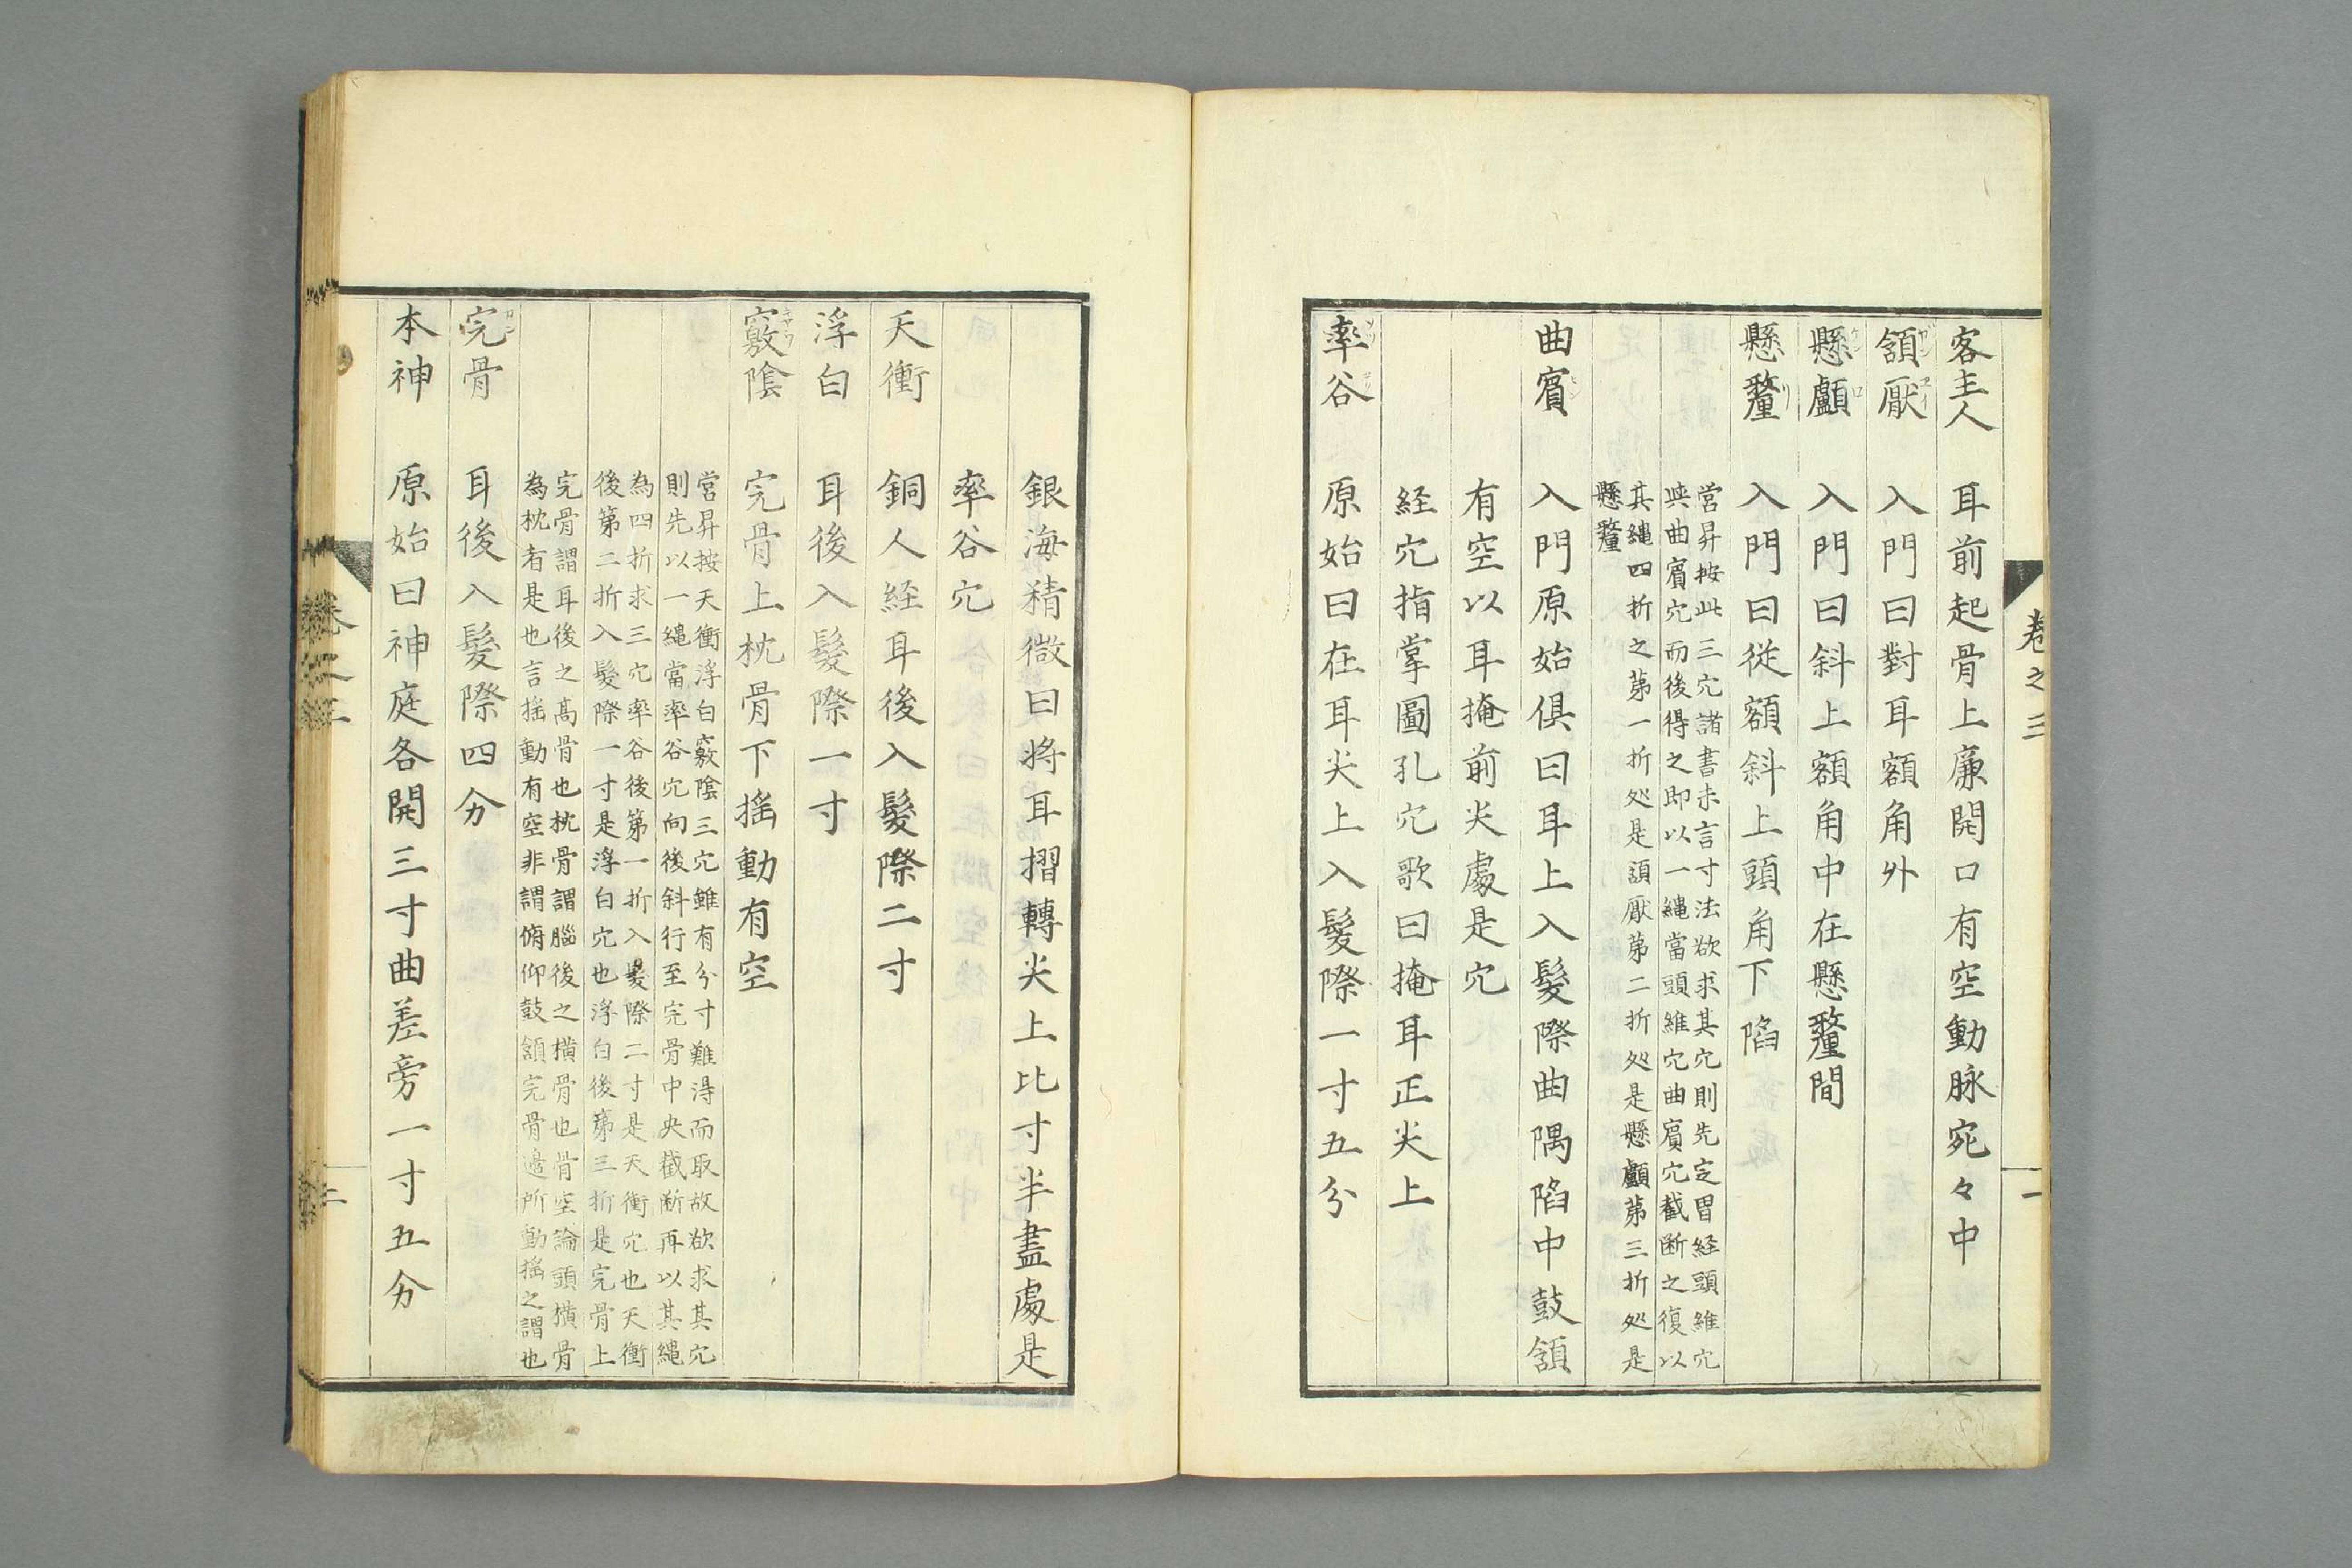 卷之三
一
客主人 耳前起骨上廉開口有空動脉宛々中
頷厭 入門曰對耳額角外
懸顱 入門曰斜上額角中在懸釐間
懸釐 入門曰從額斜上頭角下陷
當昇按此三穴諸書未言寸法欲求其穴則先定胃経頭維穴
與曲賓穴而後得之即以一繩當頭維穴曲賓穴截断之復以
其繩四折之第一折处是頷厭第二折处是懸顱第三折处是
懸釐
曲賓 入門原始俱曰耳上入髮際曲隅陷中鼓頷
有空以耳掩前尖處是穴
経穴指掌圖孔穴歌曰掩耳正尖上
率谷 原始曰在耳尖上入髮際一寸五分
銀海精微曰将耳摺轉尖上比寸半盡處是
率谷穴
天衝 銅人経耳後入髮際二寸
浮白 耳後入髮際一寸
竅陰 完骨上枕骨下搖動有空
當昇按天衝浮白竅陰三穴雖有分寸難得而取故欲求其穴
則先以一繩當率谷穴向後斜行至完骨中央截断再以其繩
為四折求三穴率谷後第一折入髮際二寸是天衝穴也天衝
後第二折入髮際一寸是浮白穴也浮白後第三折是完骨上
完骨謂耳後之高骨也枕骨謂腦後之横骨也骨空論頭横骨
為枕者是也言搖動有空非謂俯仰鼓頷完骨邊所動搖之謂也
完骨 耳後入髮際四分
本神 原始曰神庭各開三寸曲差旁一寸五分
卷之三
二